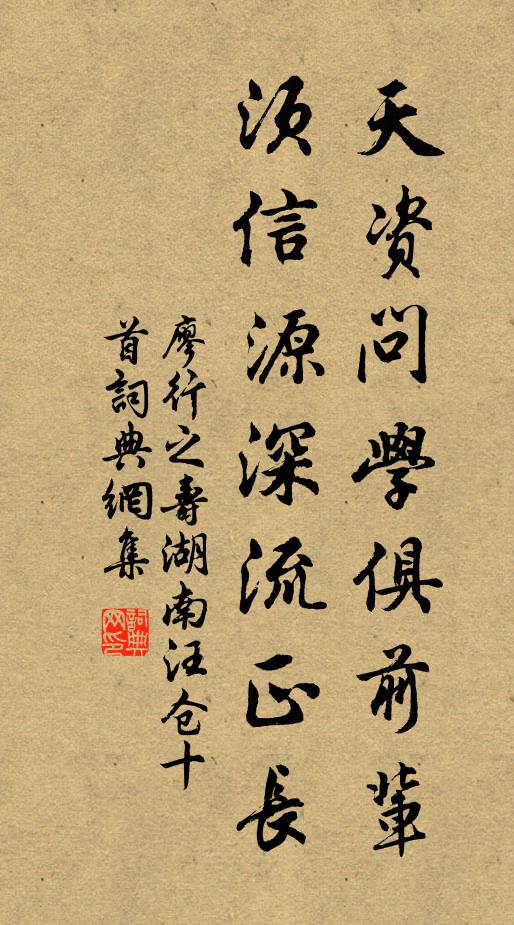 天資問學俱前輩
須信源深流正長
廖行之壽湖南汪仓十
首詞典網集
詞典
网印